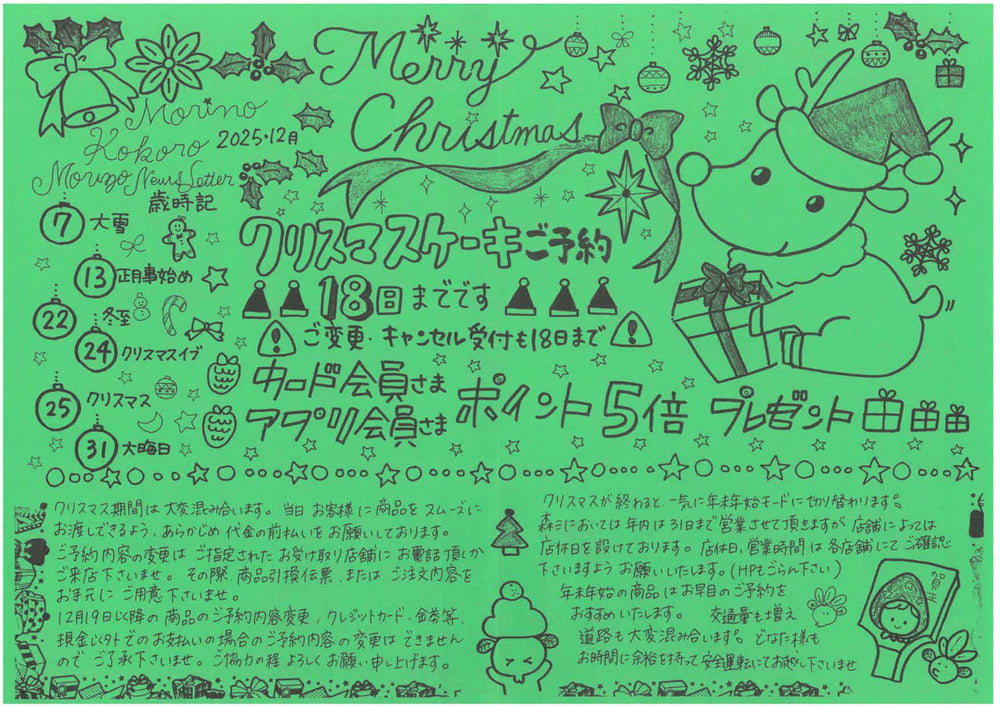 Merry
Christmas
Morino
Kokoro 2025・12月
Morizo News Letter
歳時記
7 大雪
13 正月事始め
22 冬至
24 クリスマスイブ
25 クリスマス
31 大晦日
クリスマスケーキご予約
18日までです
ご変更・キャンセル受付も18日まで
カード会員さま
アプリ会員さま
ポイント5倍 プレゼント
クリスマス期間は大変混み合います。当日お客様に商品をスムーズに
お渡しできるよう、あらかじめ代金の前払いをお願いしております。
ご予約内容の変更はご指定されたお受け取り店舗にお電話頂くか
ご来店下さいませ。その際、商品引換伝票、またはご注文内容を
お手元にご用意下さいませ。
12月19日以降の商品のご予約内容変更、クレジットカード、金券等、
現金以外でのお支払いの場合のご予約内容の変更はできません
のでご了承下さいませ。ご協力の程よろしくお願い申し上げます。
クリスマスが終わると、一気に年末年始モードに切り替わります。
森三においては年内は31日まで営業させて頂きますが店舗によっては
店休日を設けております。店休日、営業時間は各店舗にてご確認
下さいますようお願いいたします。(HPもごらん下さい)
年末年始の商品はお早目のご予約を
おすすめいたします。 交通量も増え
道路も大変混み合います。どなた様も
お時間に余裕を持って安全運転にてお越し下さいませ